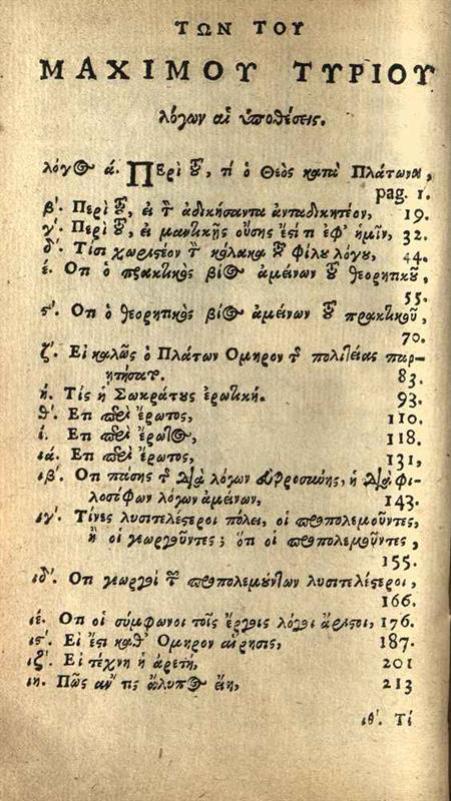 ΤΩΝ ΤΟΥ
ΜΑΧΙΜΟΥ ΤΥΡΙΟΥ
λόγων αἱ ὑποθέσεις.
λόγος ά. Περὶ τοῦ, τί ὁ Θεὸς κατὰ Πλάτωνα,
pag. 1.
β'. Περὶ τοῦ, εἰ τὸν ἀδικήσαντα ἀνταδικητέον, 19.
γ'. Περὶ τοῦ, εἰ μαντικῆς οὔσης ἔστί τι ἐφ' ἡμῖν, 32.
δ'. Τίσι χωριστέον τὸν κόλακα τοῦ φίλου λόγου, 44.
έ. Οτι ὁ πρακτικὸς βίος ἀμείνων τοῦ θεορητικοῦ,
55.
ς'. Οτι ὁ θεορητικὸς βίος ἀμείνων τοῦ πρακτικοῦ,
70.
ζ'. Εἰ καλῶς ὁ Πλάτων Ομηρον τῆς πολιτείας παρ-
ῃτήσατο. 83.
ή. Τίς ἡ Σωκράτους ἐρωτική. 93.
θ'. Ετι περὶ ἔρωτος, 110.
ί. Ετι περὶ ἔρωτος, 118.
ιά. Ετι περὶ ἔρωτος, 131,
ιβ'. Οτι πάσης τῆς διὰ λόγων εὐφροσύνης, ἡ διὰ φι-
λοσόφων λόγων ἀμείνων, 143.
ιγ'. Τίνες λυσιτελέστεροι πόλει, οἱ προπολεμοῦντες,
ἢ οἱ γεωργοῦντες; ὅτι οἱ προπολεμοῦντες,
155.
ιδ'. Οτι γεωργοὶ τῶν προπολεμούντων λυσιτελέστεροι,
166.
ιέ. Οτι οἱ σύμφωνοι τοῖς ἔργοις λόγοι ἄριστοι, 176.
ις'. Εἰ ἔστι καθ' Ομηρον αἵρησις, 187.
ιζ'. Εἰ τέχνη ἡ ἀρετή, 201
ιη. Πῶς ἄν τις ἄλυπος εἴη, 213
ιθ'. Τί